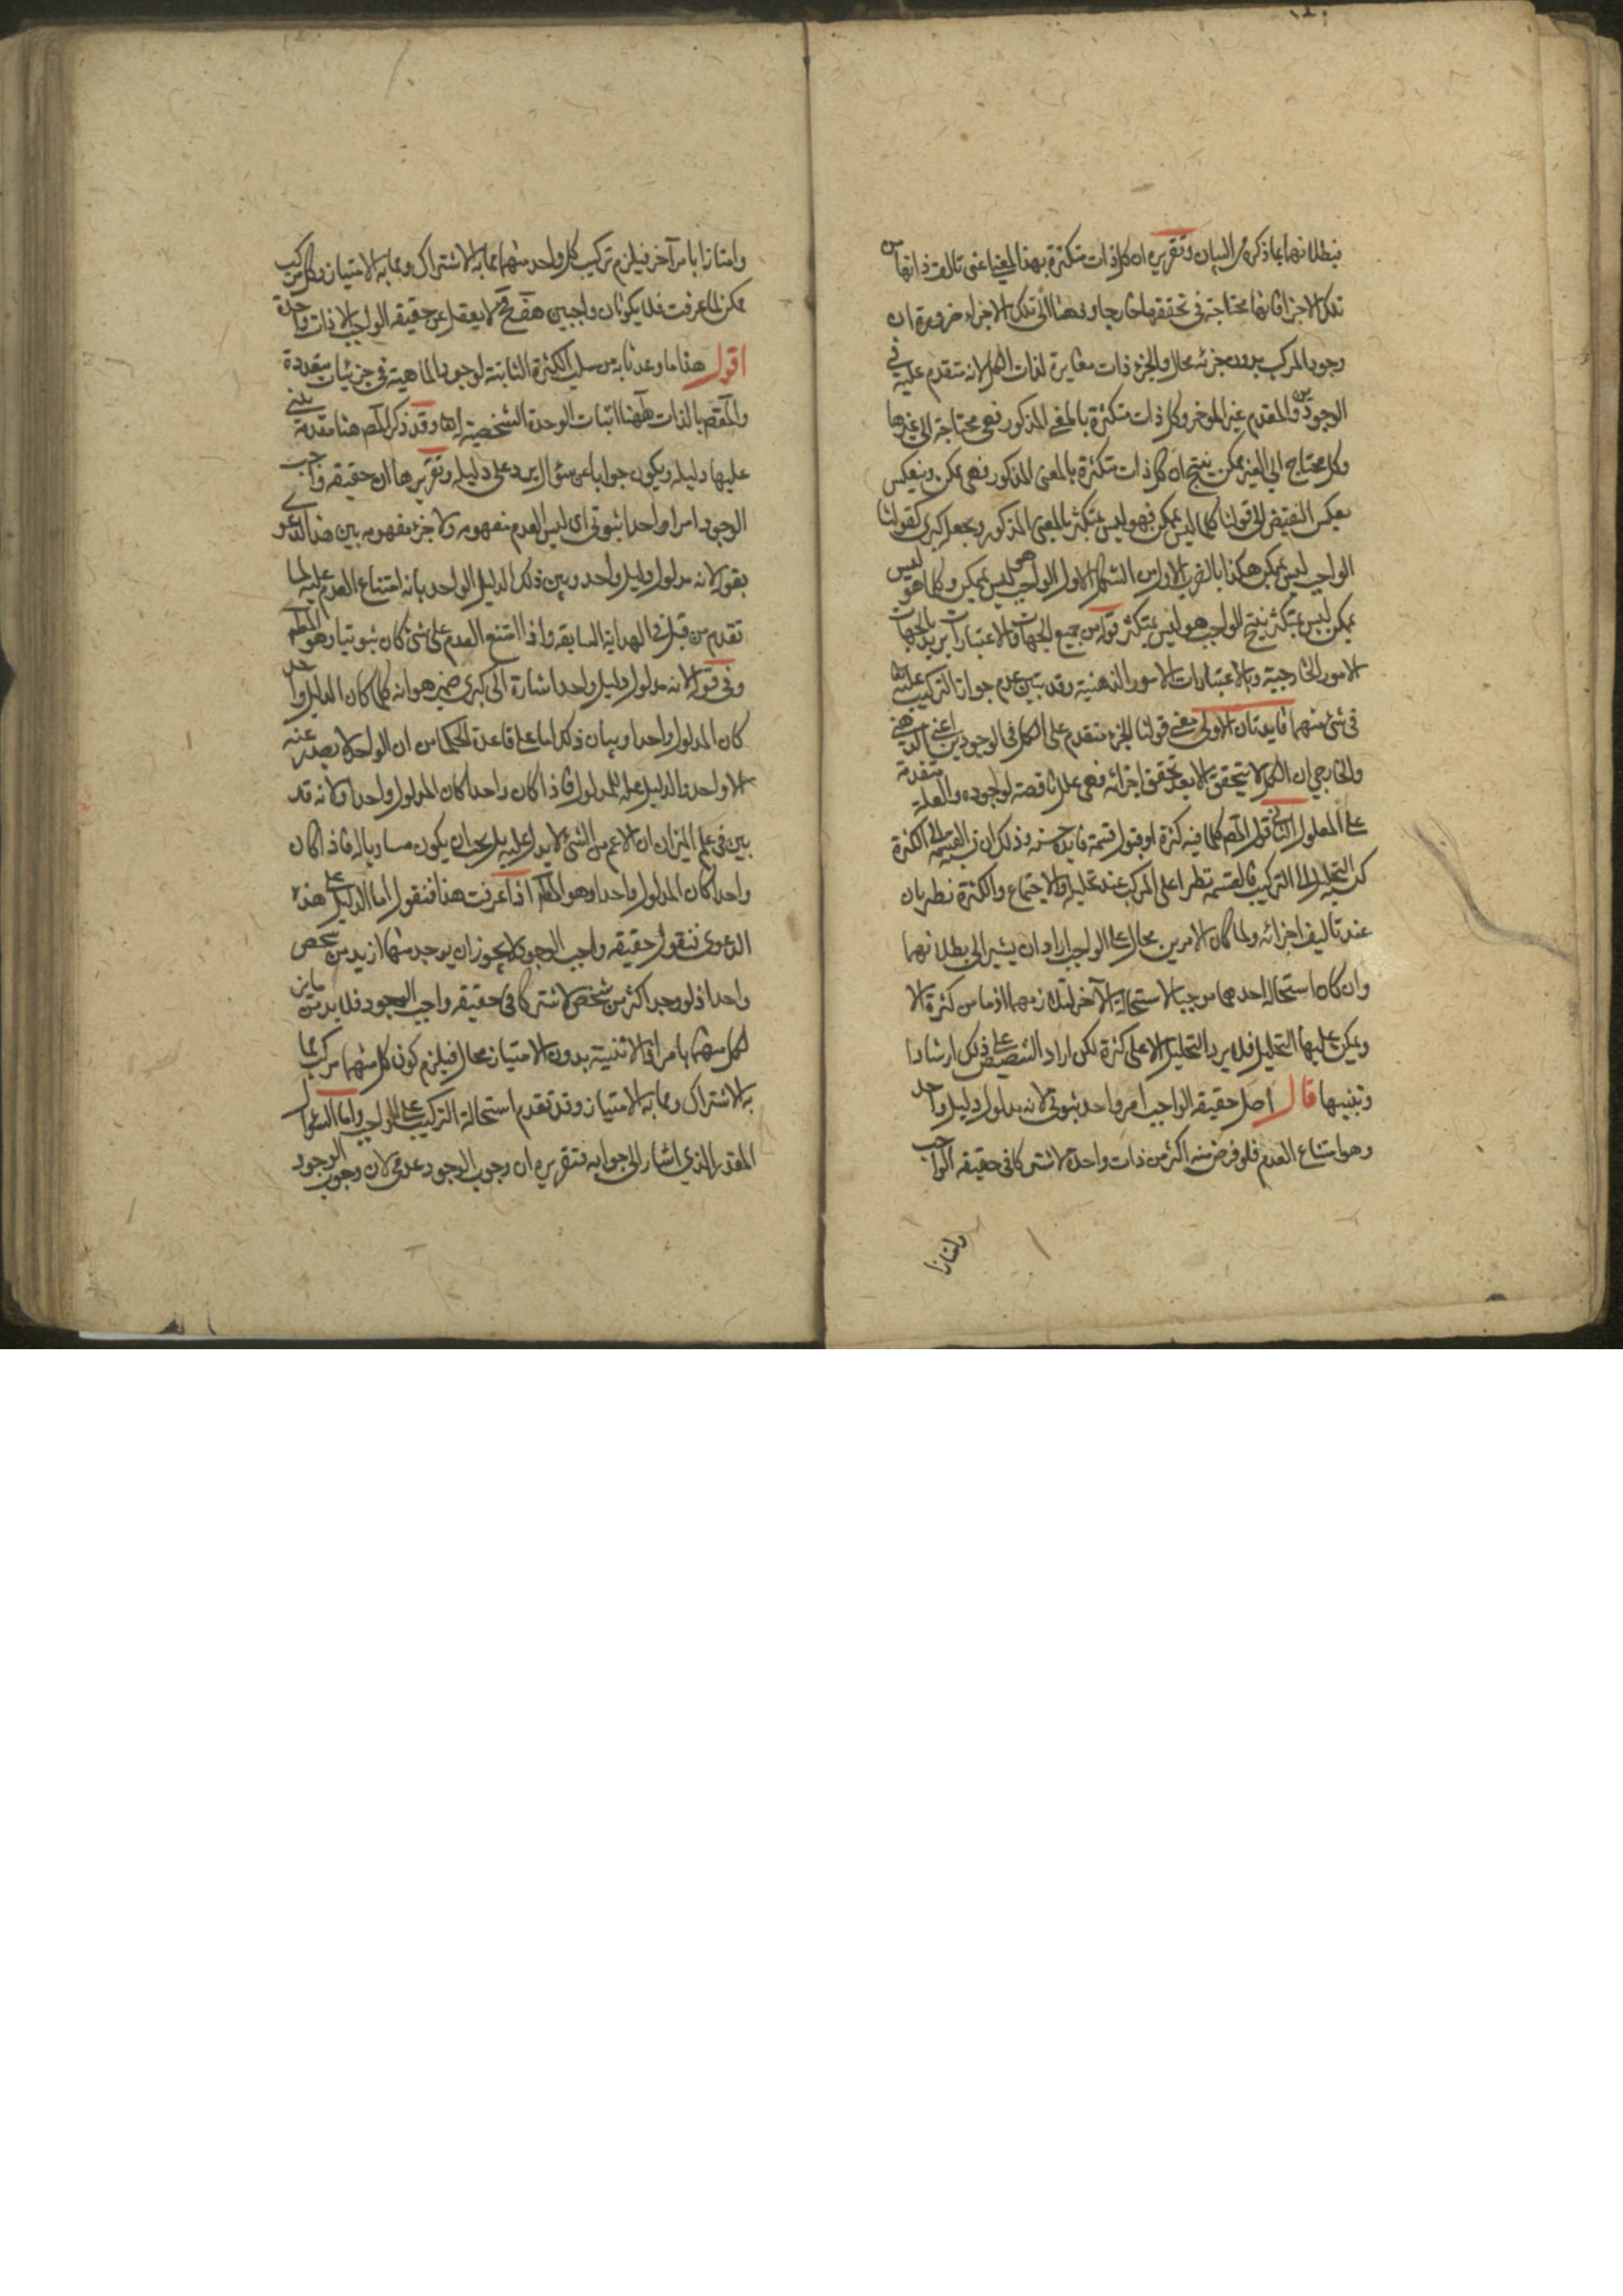 فبطلانهما بما ذكره من البيان وتقريره ان كل ذات متكثرة بهذا المعنى اعنى تالف ذاتها من
تلك الاجزاء فانها محتاجة في تحققها خارجا وذهنا الى تلك الاجزاء ضرورة ان
وجود المركب بدون جزئه محال والجزء ذات مغايرة لذات الكل لانه متقدم عليه في
الوجودين والمقدم غير الموخر وكل ذات متكثرة بالمعنى المذكور فهى محتاجة الى غيرها
وكل محتاج الى الغير ممكن ينتج ان كل ذات متكثرة بالمعنى المذكور فهى ممكن وينعكس
بعكس النقيض الى قولنا كلما ليس بممكن فهو ليس بمتكثر بالمعنى المذكور ويجعل كبرى لقولنا
الواجب ليس بممكن هكذا بالضرب الاول من الشكل الاول الواجب هو ليس بممكن وكلما هو ليس
بممكن ليس بمتكثر ينتج الواجب هو ليس بمتكثر قوله من جميع الجهات والاعتبارات يريد بالجهات
الامور الخارجية وبالاعتبارات الامور الذهنية وقد تبين عدم جواز التركيب عليه
في شئ منهما فايدتان الاولى معنى قولنا الجزء متقدم على الكل في الوجودين اعني الذهني
والخارجي ان الكل لا يتحقق الا بعد تحقق اجزائه فهى علل ناقصة لوجوده والعلة متقدمة
على المعلول الثانى قول المصم كلما فيه كثرة او قبول قسمة فايدة حسنة وذلك ان نسبة القسمة الى الكثرة
كنسبة التحليل الى التركيب فالقسمة تطرا على المركب عند تحليله والاجتماع والكثرة تطريان
عند تاليف اجزائه ولما كان الامرين محال على الواجب اراد ان يشير الى بطلانهما
وان كان استحالة احدهما موجبا لاستحالة الآخر لتلازمهما اذ ما من كثرة الا
ويمكن عليها التحليل فلا يرد التحليل الا على كثرة لكن اراد التنصيص على ذلك ارشادا
وتنبيها قال اصل حقيقة الواجب امر واحد ثبوتي لانه مدلول دليل واحد
وهو امتناع العدم فلو فرض منه اكثر من ذات واحدة لاشتركا في حقيقة الواجب
وامتازا
وامتازا بامر آخر فيلزم تركيب كل واحد منهما مما به الاشتراك ومما به الامتياز وكل مركب
ممكن لما عرفت فلا يكونان واجبين هف فح لا يعقل عن حقيقة الواجب الا ذات واحدة
اقول هذا ما وعدنا به من سلب الكثرة الثابتة لوجود الماهية في جزئيات متعددة
والمقصم بالذات ههنا اثبات الوحدة الشخصية وقد ذكر المصم هنا مقدمة يبني
عليها دليله ويكون جوابا عن سؤال يرد على دليله وتقريرها ان حقيقة واجب
الوجود امرا واحدا ثبوتي اى ليس العدم مفهومه ولا جزء مفهومه بين هذا الدعوى
بقوله لانه مدلول دليل واحد وبين ذلك الدليل الواحد بانه امتناع العدم عليه لما
تقدم من قبل في الهداية السابقة واذا امتنع العدم على شئ كان ثبوتيا وهو المطم
وفي قوله لانه مدلول دليل واحد اشارة الى كبرى ضمير هو انه كلما كان الدليل واحد
كان المدلول واحدا وبيان ذلك اما على قاعدة الحكما من ان الواحد لا يصدر عنه
الا واحد والدليل علة للمدلول فاذا كان واحدا كان المدلول واحدا ولانه قد
بين في علم الميزان ان الاعم من الشئ لا يدل عليه بل يجب ان يكون مساويا له فاذا كان
واحدا كان المدلول واحدا وهو المطم اذا عرفت هذا فنقول اما الدليل على هذه
الدعوى فنقول حقيقة واجب الوجود لا يجوز ان يوجد منها ازيد من شخص
واحد اذ لو وجد اكثر من شخص لاشتركا في حقيقة واجب الوجود فلا بد من مايز
لكل منهما بامر اذ الاثنينية بدون الامتياز محال فيلزم كون كل منهما مركبا مما
به الاشتراك ومما به الامتياز وقد تقدم استحالة التركيب على الواجب واما السؤال
المقدر الذي اشار الى جوابه فتقريره ان وجوب الوجود عدمي لان وجوب الوجود